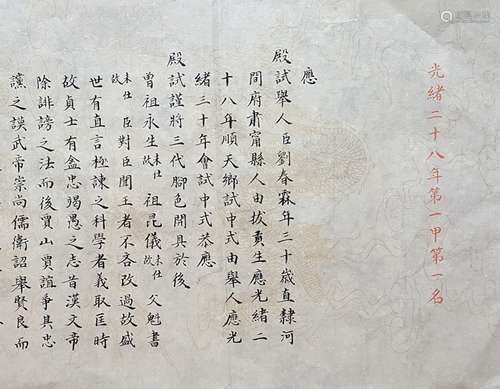 光緒二十八年第一甲第一名
應
殿試舉人臣劉春霖年三十歲直隸河
間府肅甯縣人由拔貢生應光緒二
十八年順天鄉試中式由舉人應光
緒三十年會試中式恭應
殿試謹將三代腳色開具於後
曾祖永生未仕故 祖昆儀未仕故 父魁書
未仕故 臣對臣聞王者不吝改過故盛
世有直言極諫之科學者義取匡時
故貞士有盡忠竭愚之志昔漢文帝
除誹謗之法而後賈山賈誼爭具忠
讜之謨武帝崇尚儒術詔舉賢良而